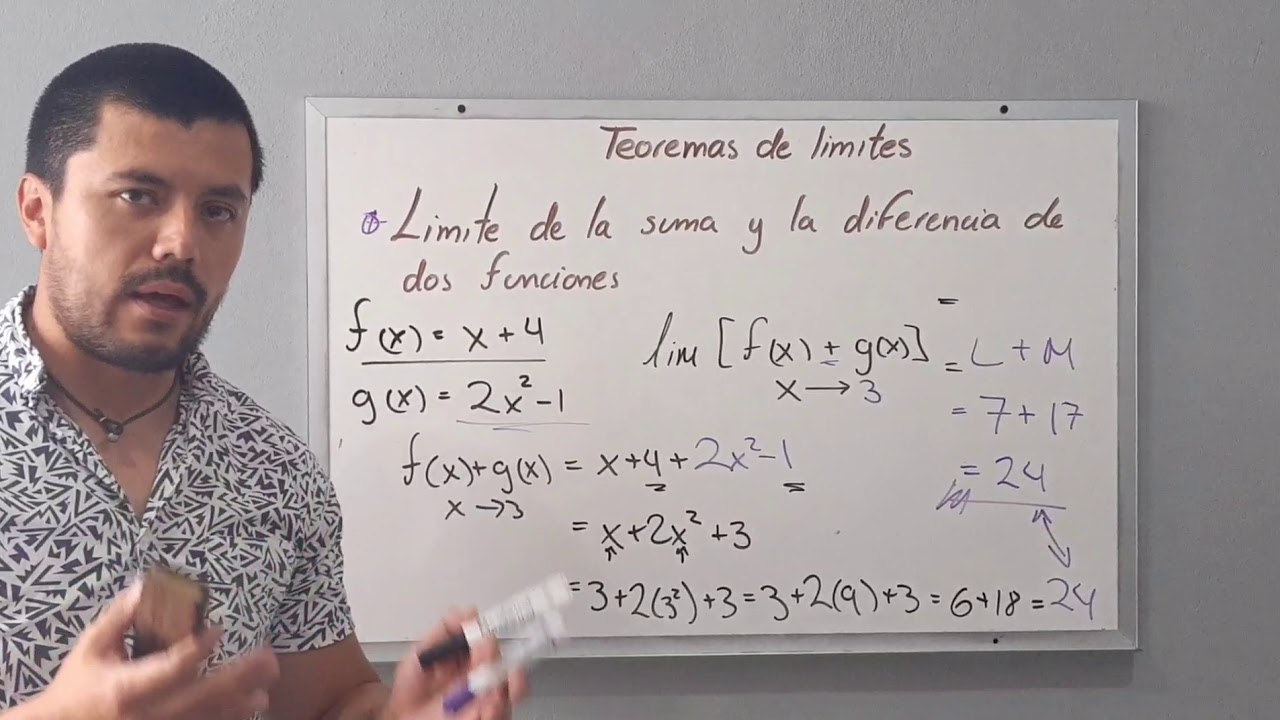 Teoremas de limites
Limite de la suma y la diferencia de
dos funciones
f(x) = x + 4
g(x) = 2x² - 1
lim [f(x) + g(x)] = L + M
x → 3
= 7 + 17
= 24
f(x)+g(x) = x+4+2x²-1
x → 3
= x+2x²+3
= 3+2(3²)+3 = 3+2(9)+3 = 6+18 = 24